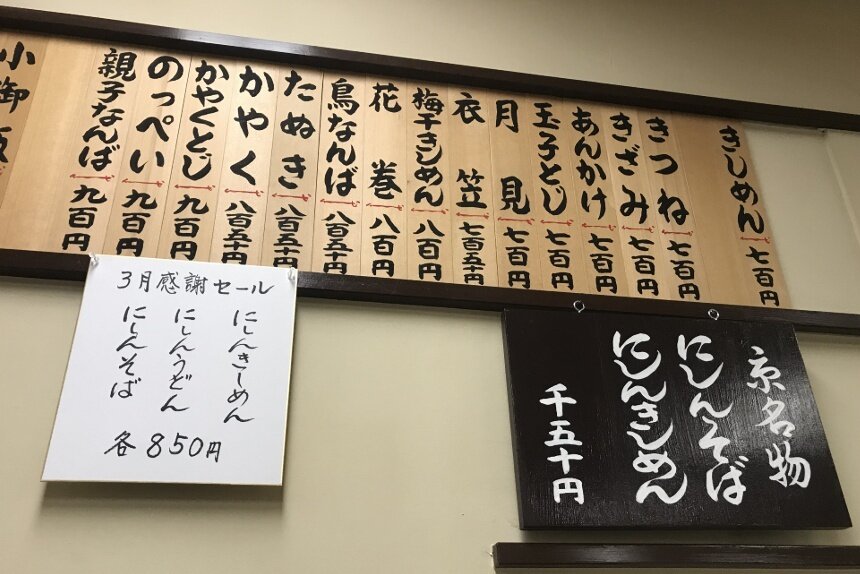 きしめん 七百円
きつね 七百円
きざみ 七百円
あんかけ 七百円
玉子とじ 七百円
月見 七百円
衣笠 七百五十円
梅干きしめん 八百円
花巻 八百円
鳥なんば 八百五十円
たぬき 八百五十円
かやく 八百五十円
かやくとじ 九百円
のっぺい 九百円
親子なんば 九百円
小御飯
京名物
にしんそば
にしんきしめん
千五十円
3月感謝セール
にしんきしめん
にしんうどん
にしんそば
各850円